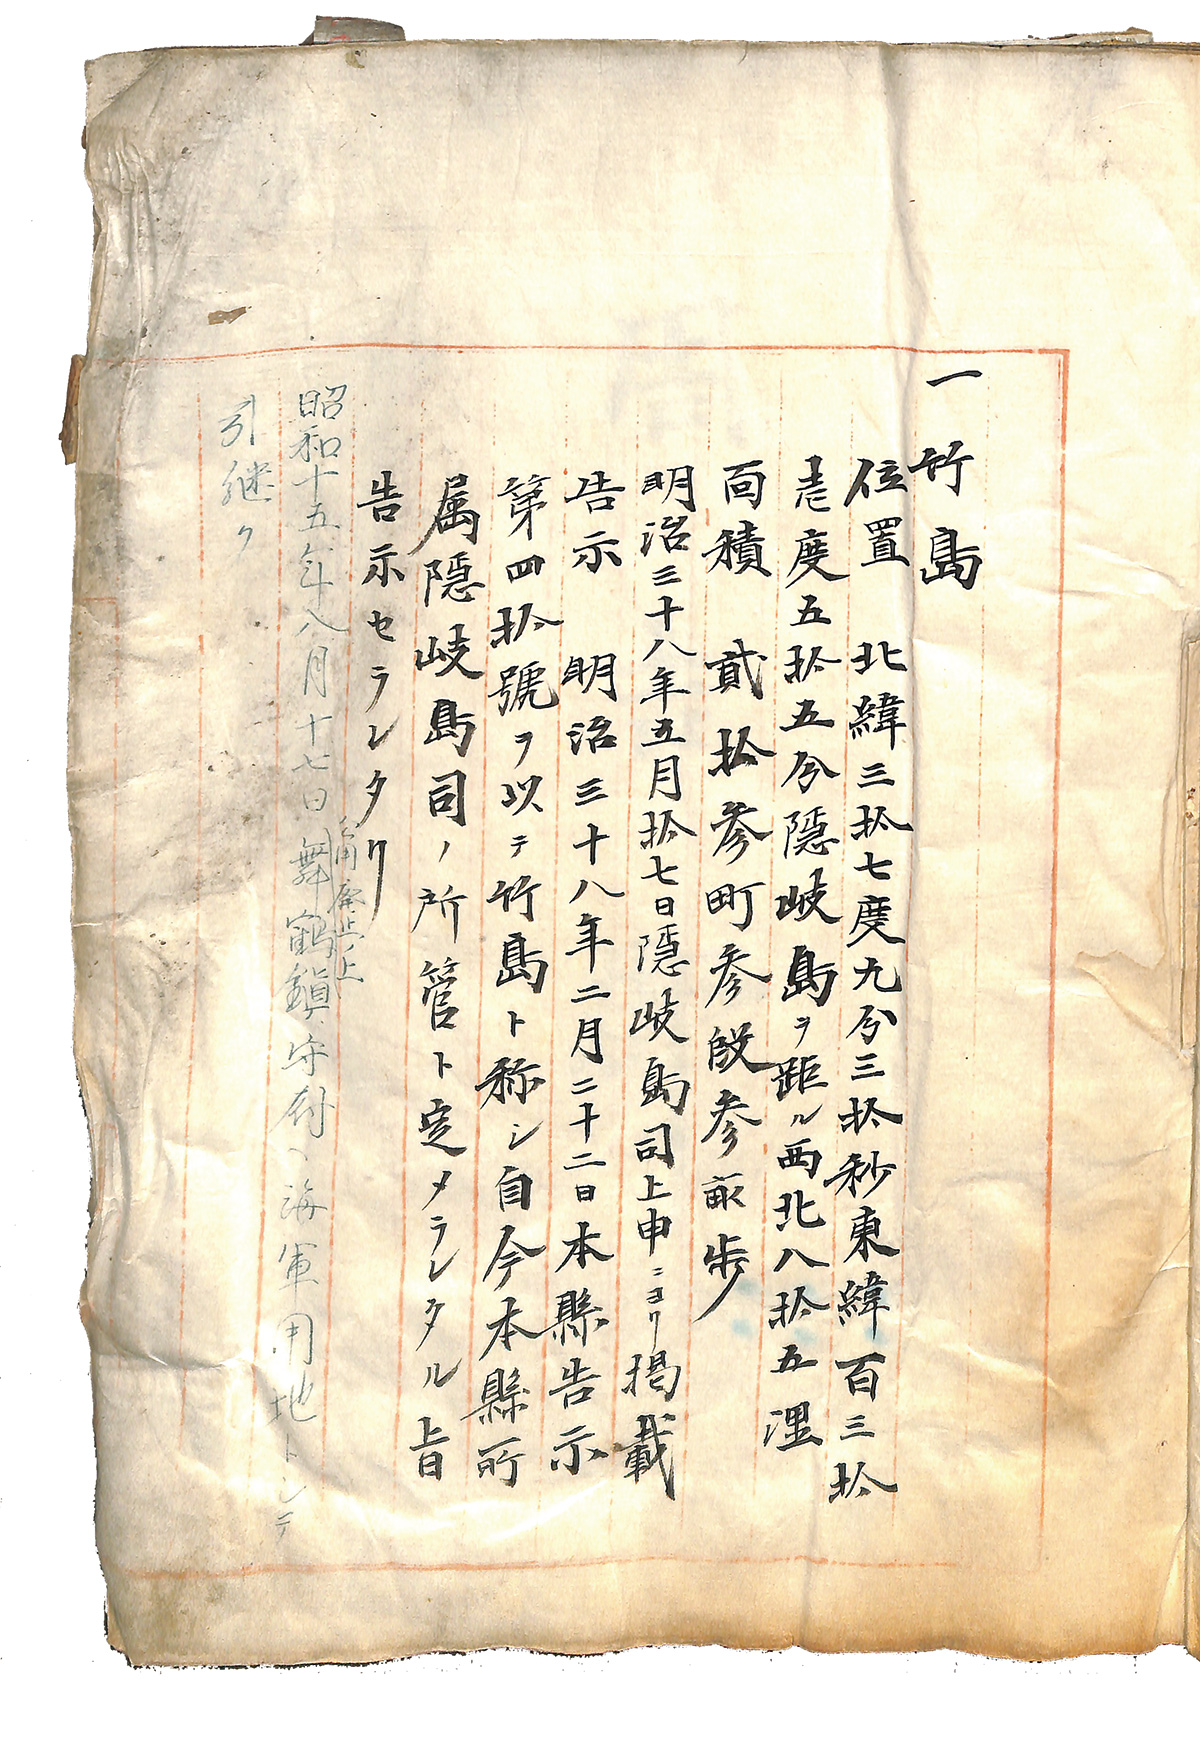 一 竹島
位置 北緯三拾七度九分三拾秒東緯百三拾
壱度五拾五分隠岐島ヲ距ル西北八拾五浬
面積 貳拾参町参段参畝歩
明治三十八年五月拾七日隠岐島司上申ニヨリ掲載
告示 明治三十八年二月二十二日本縣告示
第四拾號ヲ以テ竹島ト称シ自今本縣所
属隠岐島司ノ所管ト定メラレタル旨
告示セラレタリ
用廃止ノ上
昭和十五年八月十七日舞鶴鎮守府ヘ海軍用地トシテ
引継ク